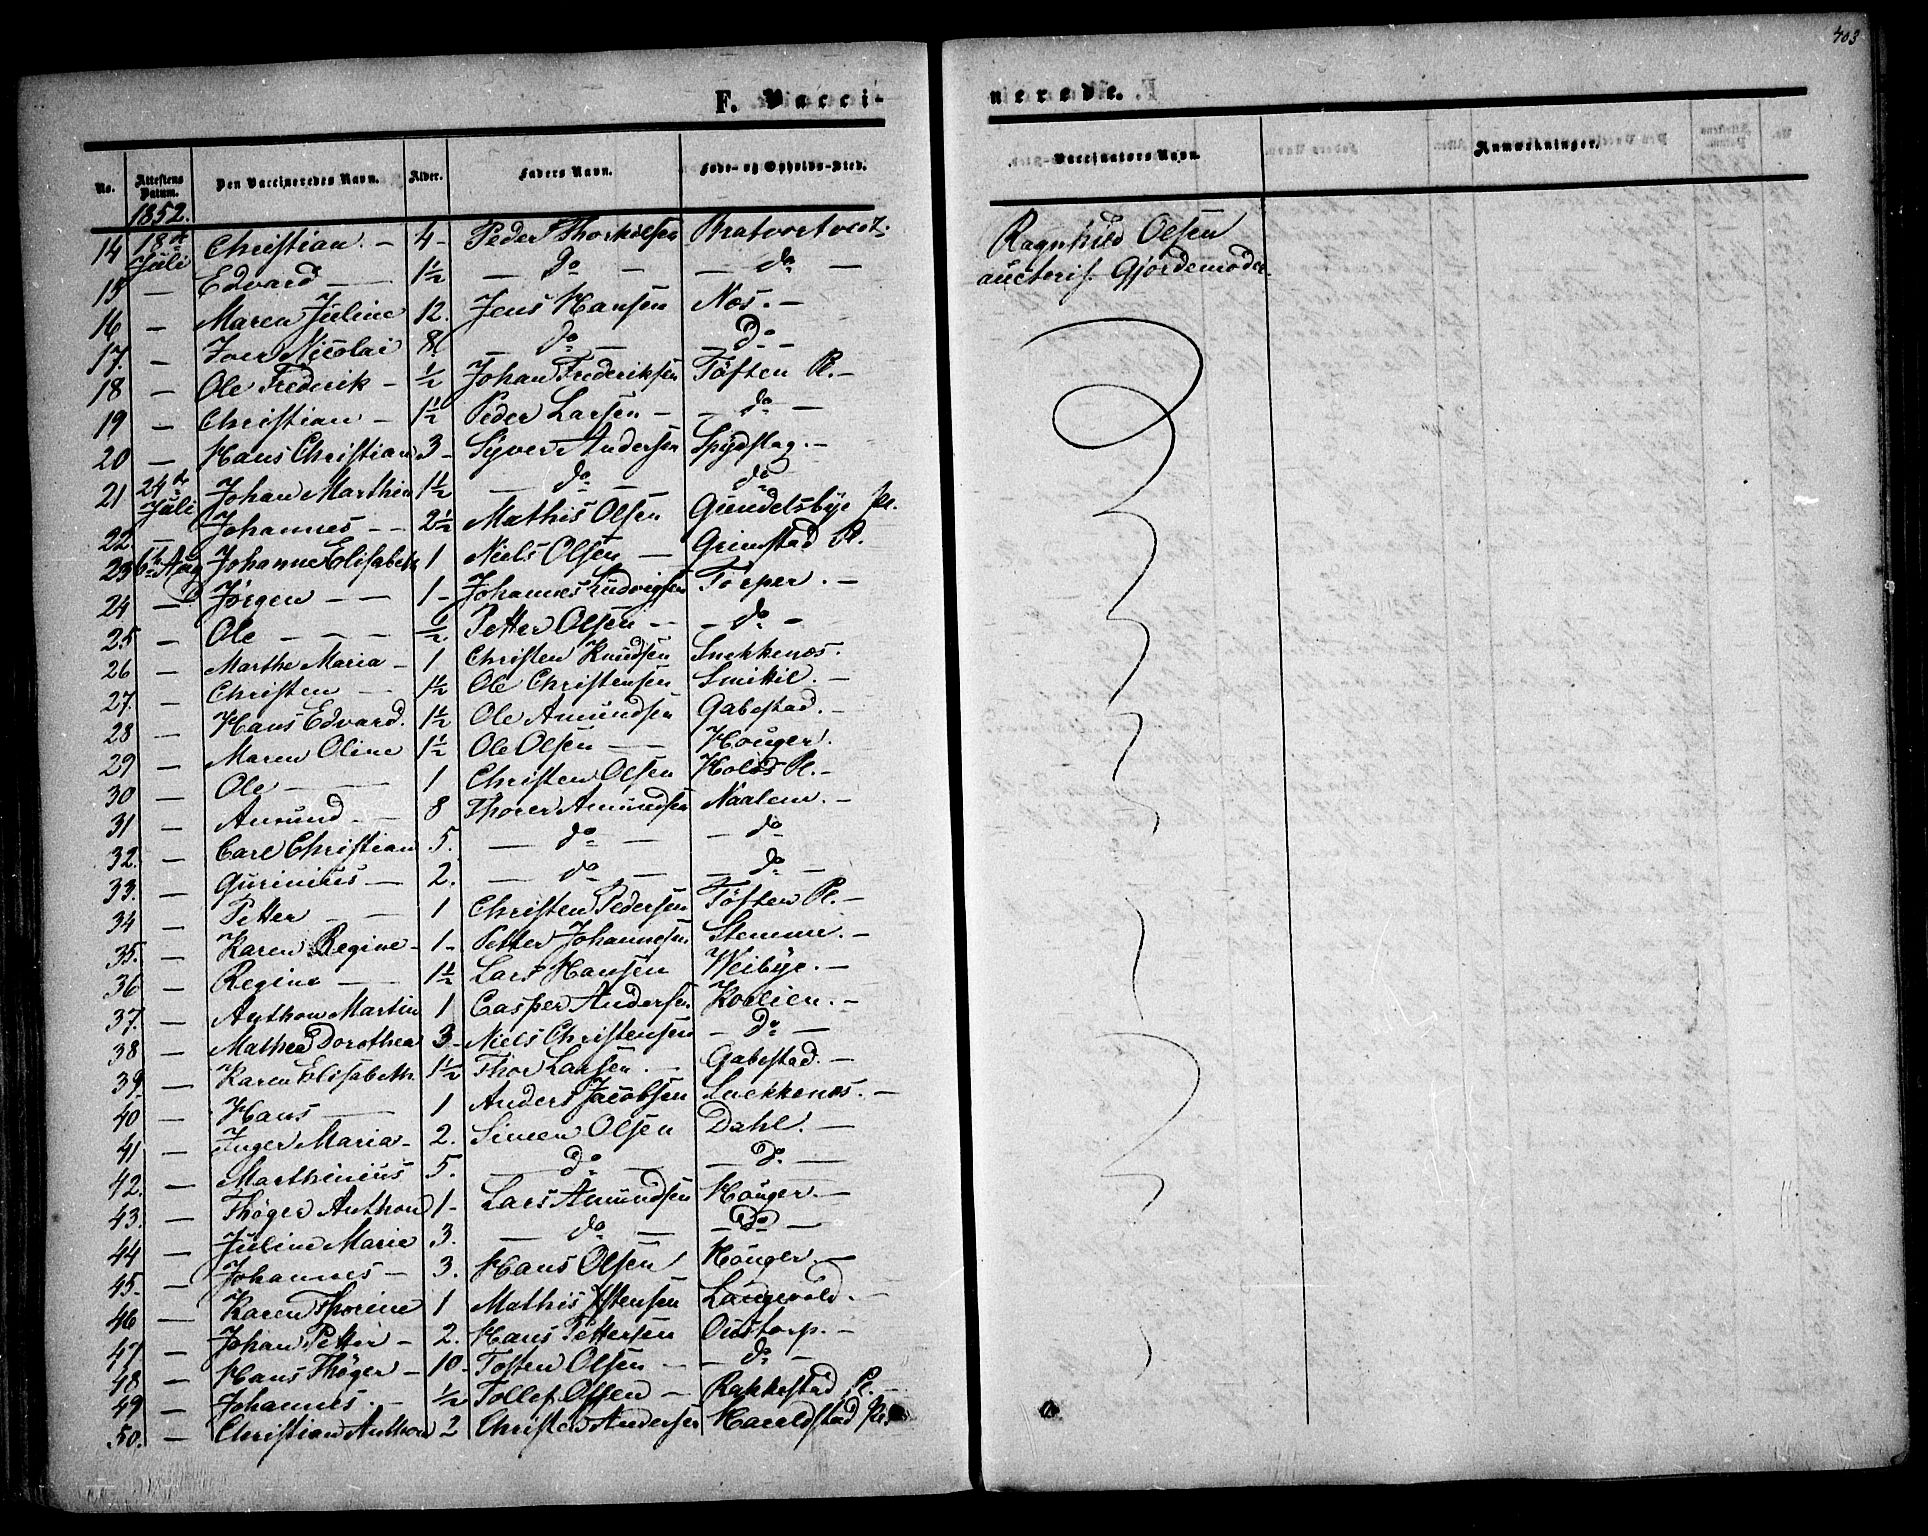 403
F. Vacci-
nerede.
No. Attestens Datum. Den Vaccineredes Navn. Alder. Faders Navn. Føde- og Opholds-Sted. Vaccinators Navn. Anmærkninger.
1852.
14 18de Juli Christian. — 4 - Peder Thorkelsen Bratvortvedt. Ragnhild Olsen
15 — Edvard — 1½ — do — — do — auctoris. Gjordemoder
16 — Maren Juline 12. Jens Hansen Næs. —
17. — Iver Nicolai 8. — do — — Do —
18 — Ole Frederik — ½ Johan Frederiksen Tøften Pl. —
19 — Christian — 1½ Peder Larsen — — do —
20 — Hans Christian 3 — Syver Andersen Spydslag. —
21 24de Juli Johan Marthin 1½ — do — do
22. — Johannes — — 2½ Mathis Olsen Gundelsbye Pl.
23 6te Aug Johanne Elisabeth 1 Niels Olsen — Grimstad Pl.
24 — Jørgen — — 1 - Johannes Ludvigsen Torper. —
25. — Ole — — — ½ Petter Olsen — — do —
26 — Marthe Maria — 1 Christen Knudsen Snekkenæs.
27. — Christen — 1½ Ole Christensen Smittil. —
28 — Hans Edvard. 1½ Ole Amundsen Gabestad. —
29 — Maren Oline 1½ Ole Olsen — Houger.
30 — Ole — 1 Christen Olsen Holds Pl. —
31 — Amund — 8 Thorer Amundsen Naalem. —
32. — Carl Christian 5. — do — — do
33. — Gurinius — 2. — do — — do —
34 — Petter — — 1 Christen Pedersen Tøften Pl. —
35. — Karen Regine — 1 - Petter Johannesen Stemme. —
36 — Regine — 1½ Lars Hansen Weibye. —
37. — Anthon Martin 1 Casper Andersen Kolien. —
38 — Mathea Dorothea 3 - Niels Christensen — Do —
39. — Karen Elisabeth. 1½ Thor Larsen. — Gabestad. —
40 — Hans — 1 Anders Jacobsen Snekkenæs. —
41 — Inger Maria — 2. Simen Olsen Dahl. —
42. — Marthinius 5. — Do — — Do. —
43. — Thøger Anthon 1 - Lars Amundsen Houger. —
44 — Juline Marie 3. — do — — Do —
45. — Johannes — 3. Hans Olsen Houger. —
46 — Karen Thorine 1 Mathis Ostensen Langevold. —
47 — Johan Petter — 2. Hans Pettersen Oustorp. —
48 — Hans Thøger — 10 - Tosten Olsen — — do —
49 — Johannes. — ½ Tollef Olsen — Rakkestad Pl. —
50. — Christian Anthon 2 Christen Andersen Haraldstad Pl.